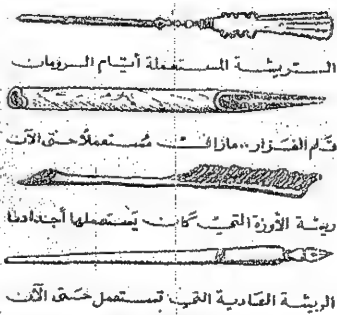 الـتريشـة المستعملة أيام الـرومان
قلم الغزار..مازالت مُستعملاً حتى الآن
ريشة الأوزة التي كانت يستعملها أجدادنا
الريشة العادية التي تستعمل حتى الآن